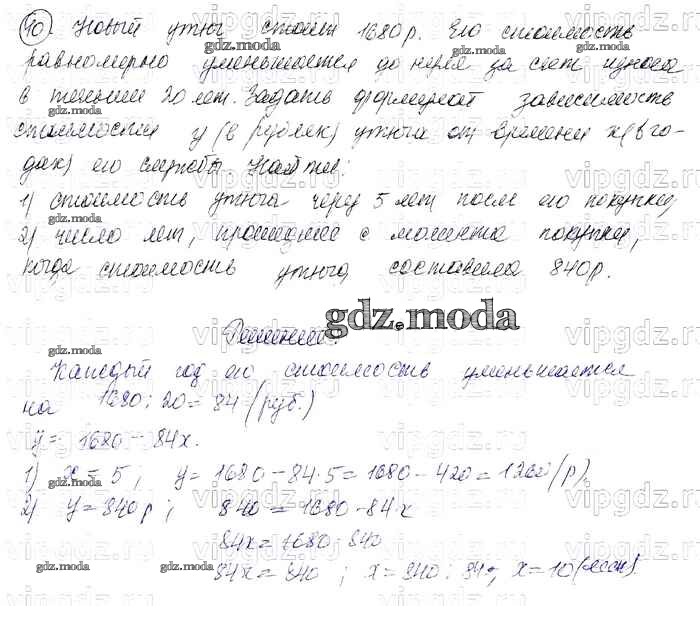 40. Новый утюг стоит 1680 р. Его стоимость
равномерно уменьшается до нуля за счет износа
в течении 20 лет. Задать формулой зависимость
стоимости y (в рублях) утюга от времени x (в го-
дах) его службы. Найти:
1) стоимость утюга через 5 лет после его покупки;
2) число лет, прошедшее с момента покупки,
когда стоимость утюга составила 840 р.
gdz.moda
Решение:
Каждый год его стоимость уменьшается
на 1680 : 20 = 84 (руб.)
y = 1680 - 84x.
1) x = 5, y = 1680 - 84·5 = 1680 - 420 = 1260 (р).
2) y = 840 р; 840 = 1680 - 84x
84x = 1680 - 840
84x = 840; x = 840 : 84, x = 10 (лет).